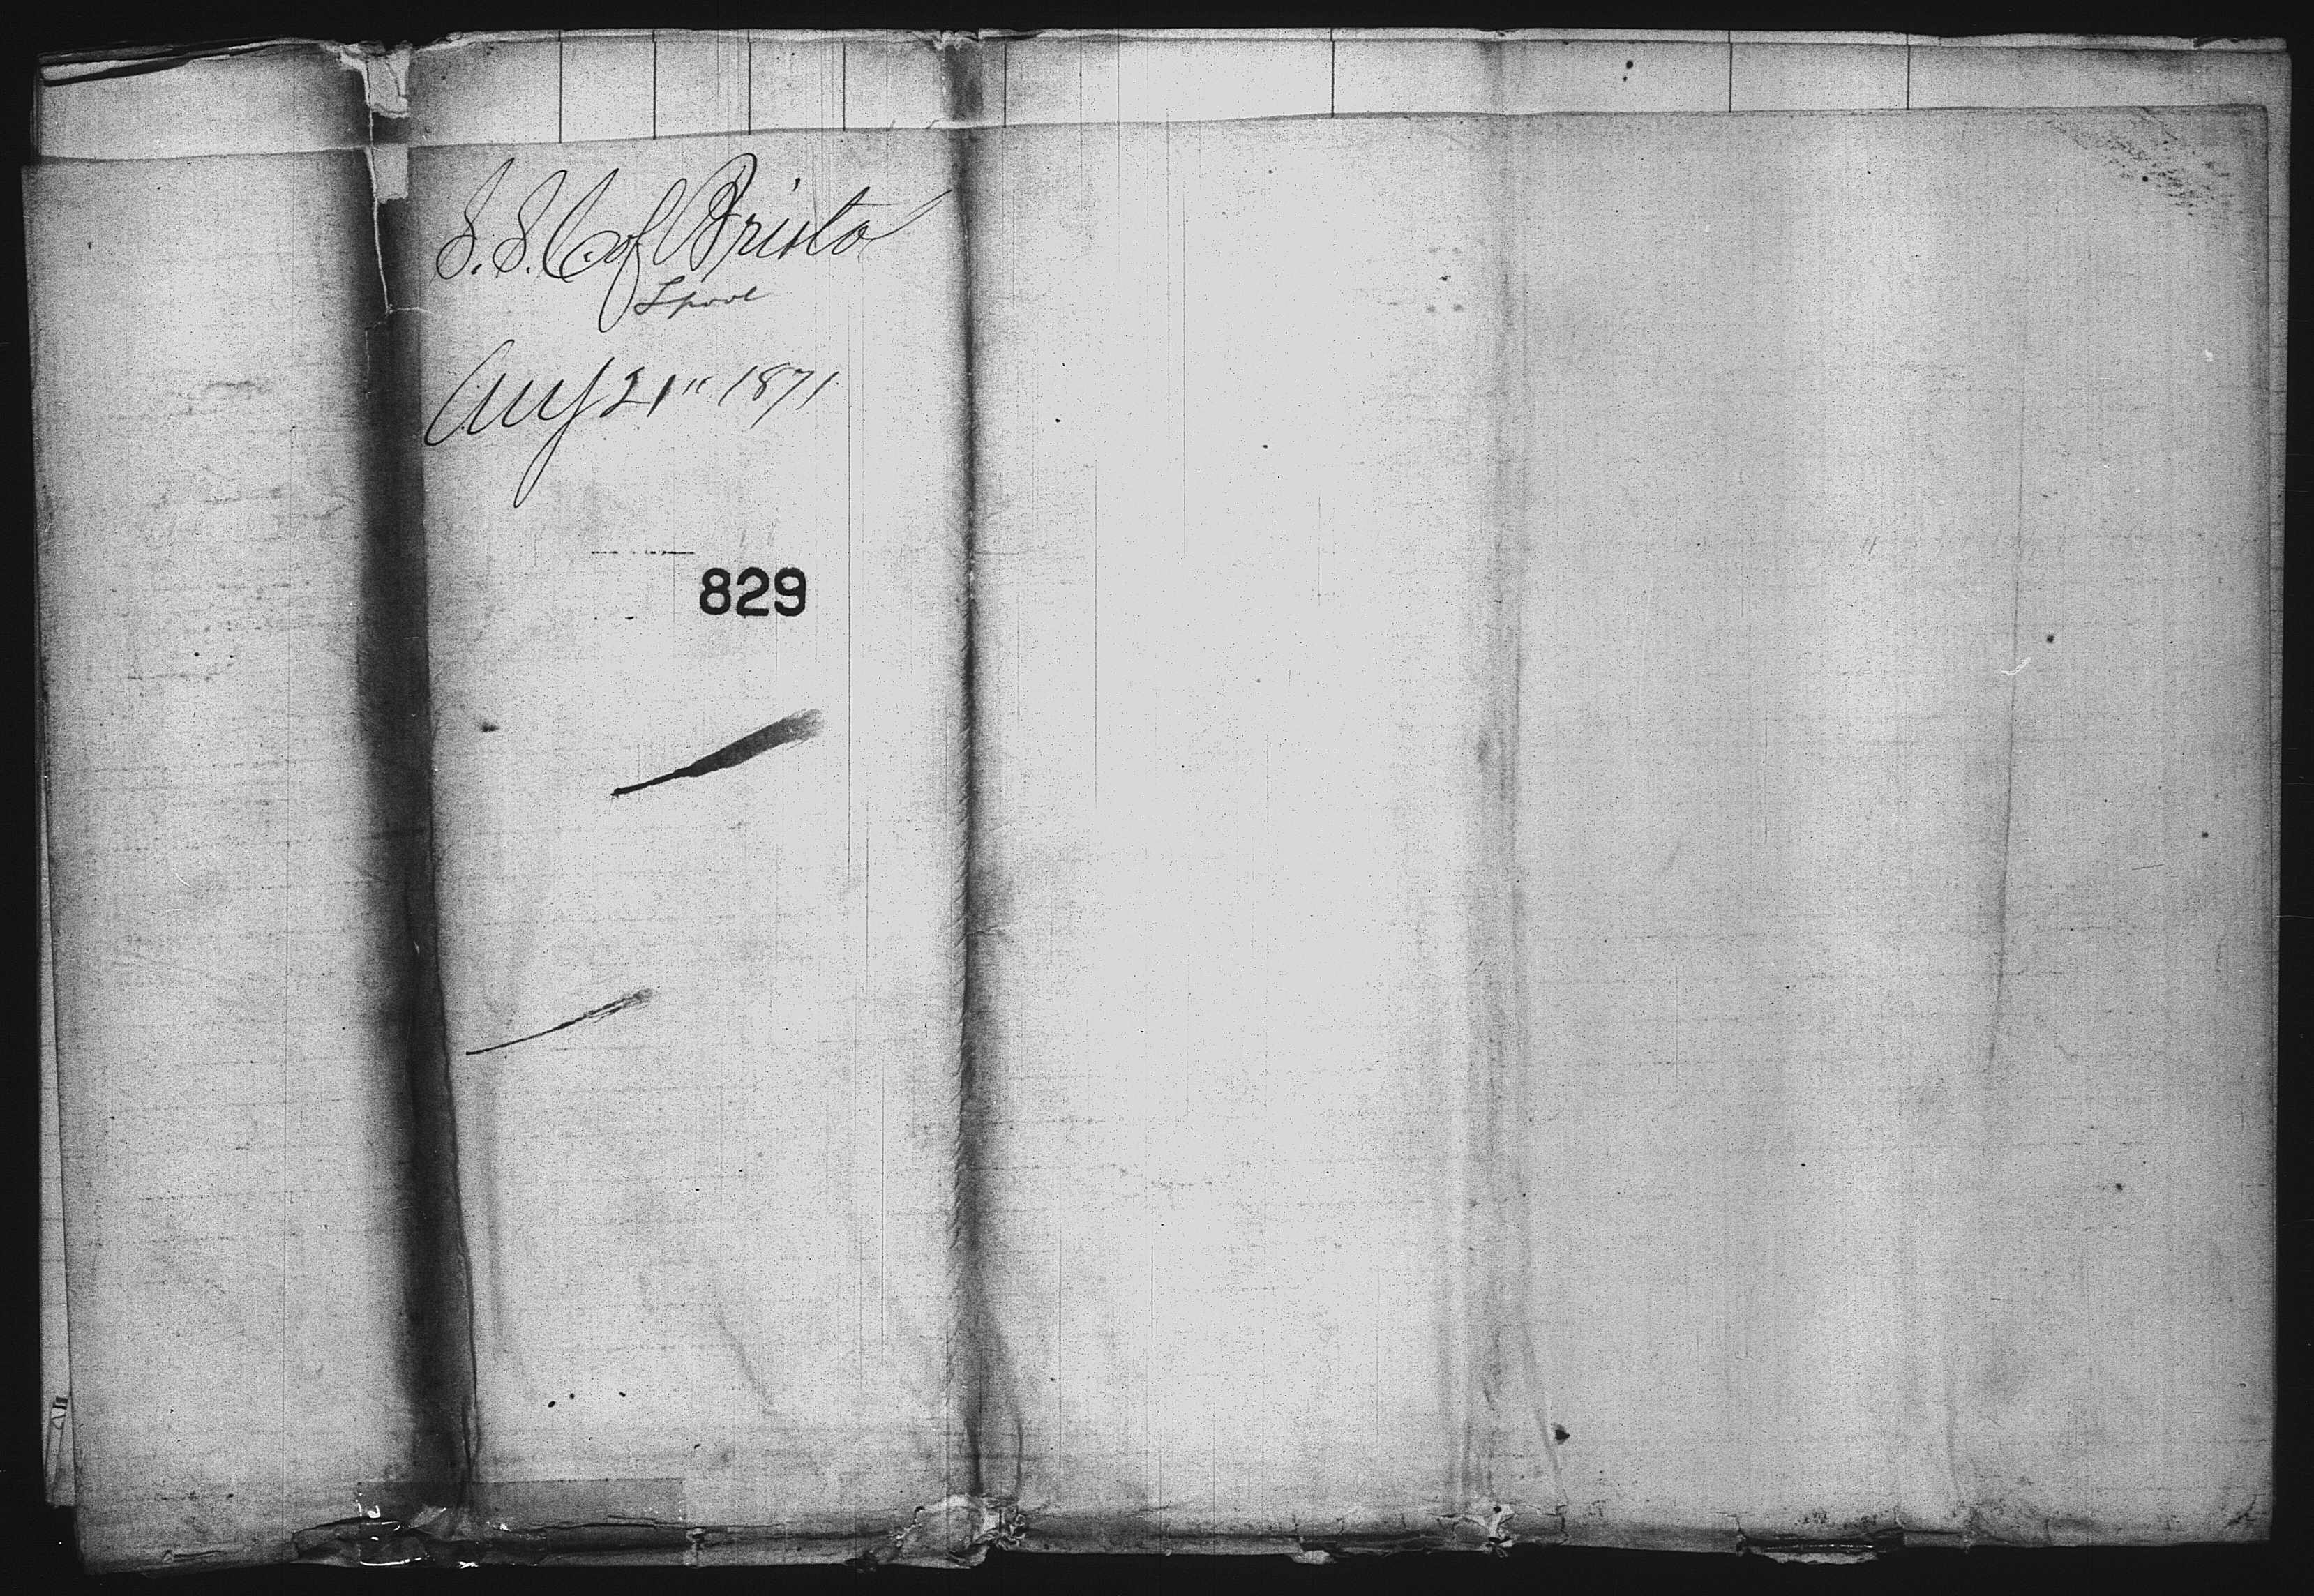 S.S. C. of Bristol
Lpool
Aug 21" 1871
829